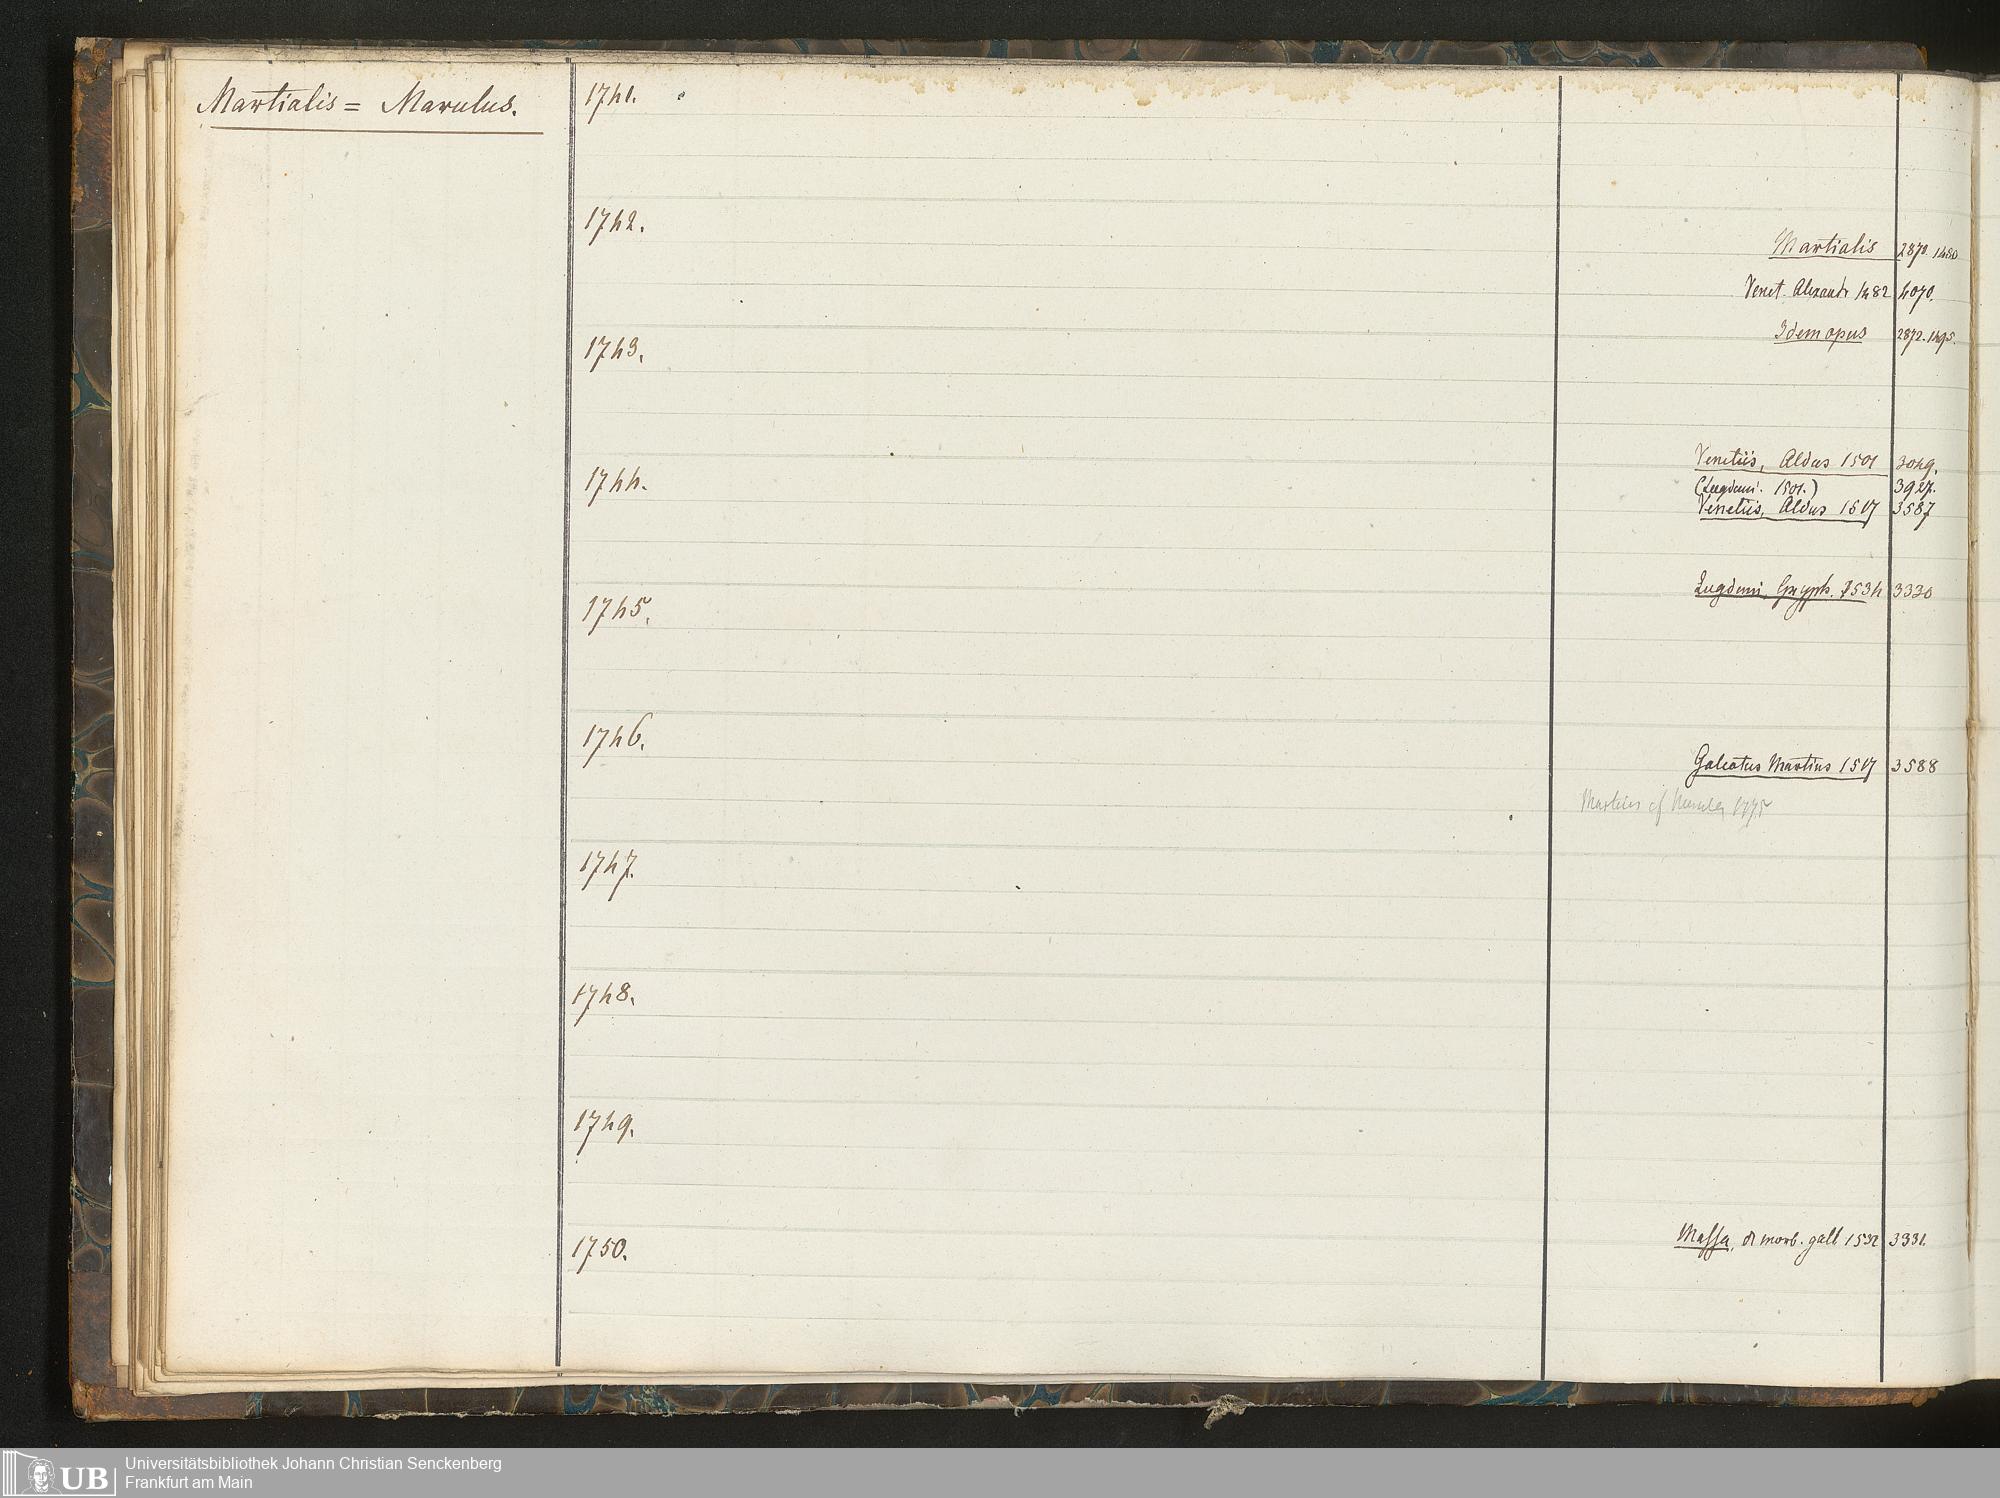 Martialis = Marulus.
1741.
1742.
Martialis 2870. 1480
Venet. Alexandr 1482 4070.
1743.
Idem opus 2872. 1495.
1744.
Venetiis, Aldus 1501 3049.
(Lugduni. 1501.) 3927.
Venetiis, Aldus 1517 3587
1745.
Lugduni, Gryph. 1534 3330
1746.
Galeotus Martius 1517 3588
Martius cf 1775
1747.
1748.
1749.
1750.
Massa, d morb. gall 1532 3331.
UB
Universitätsbibliothek Johann Christian Senckenberg
Frankfurt am Main